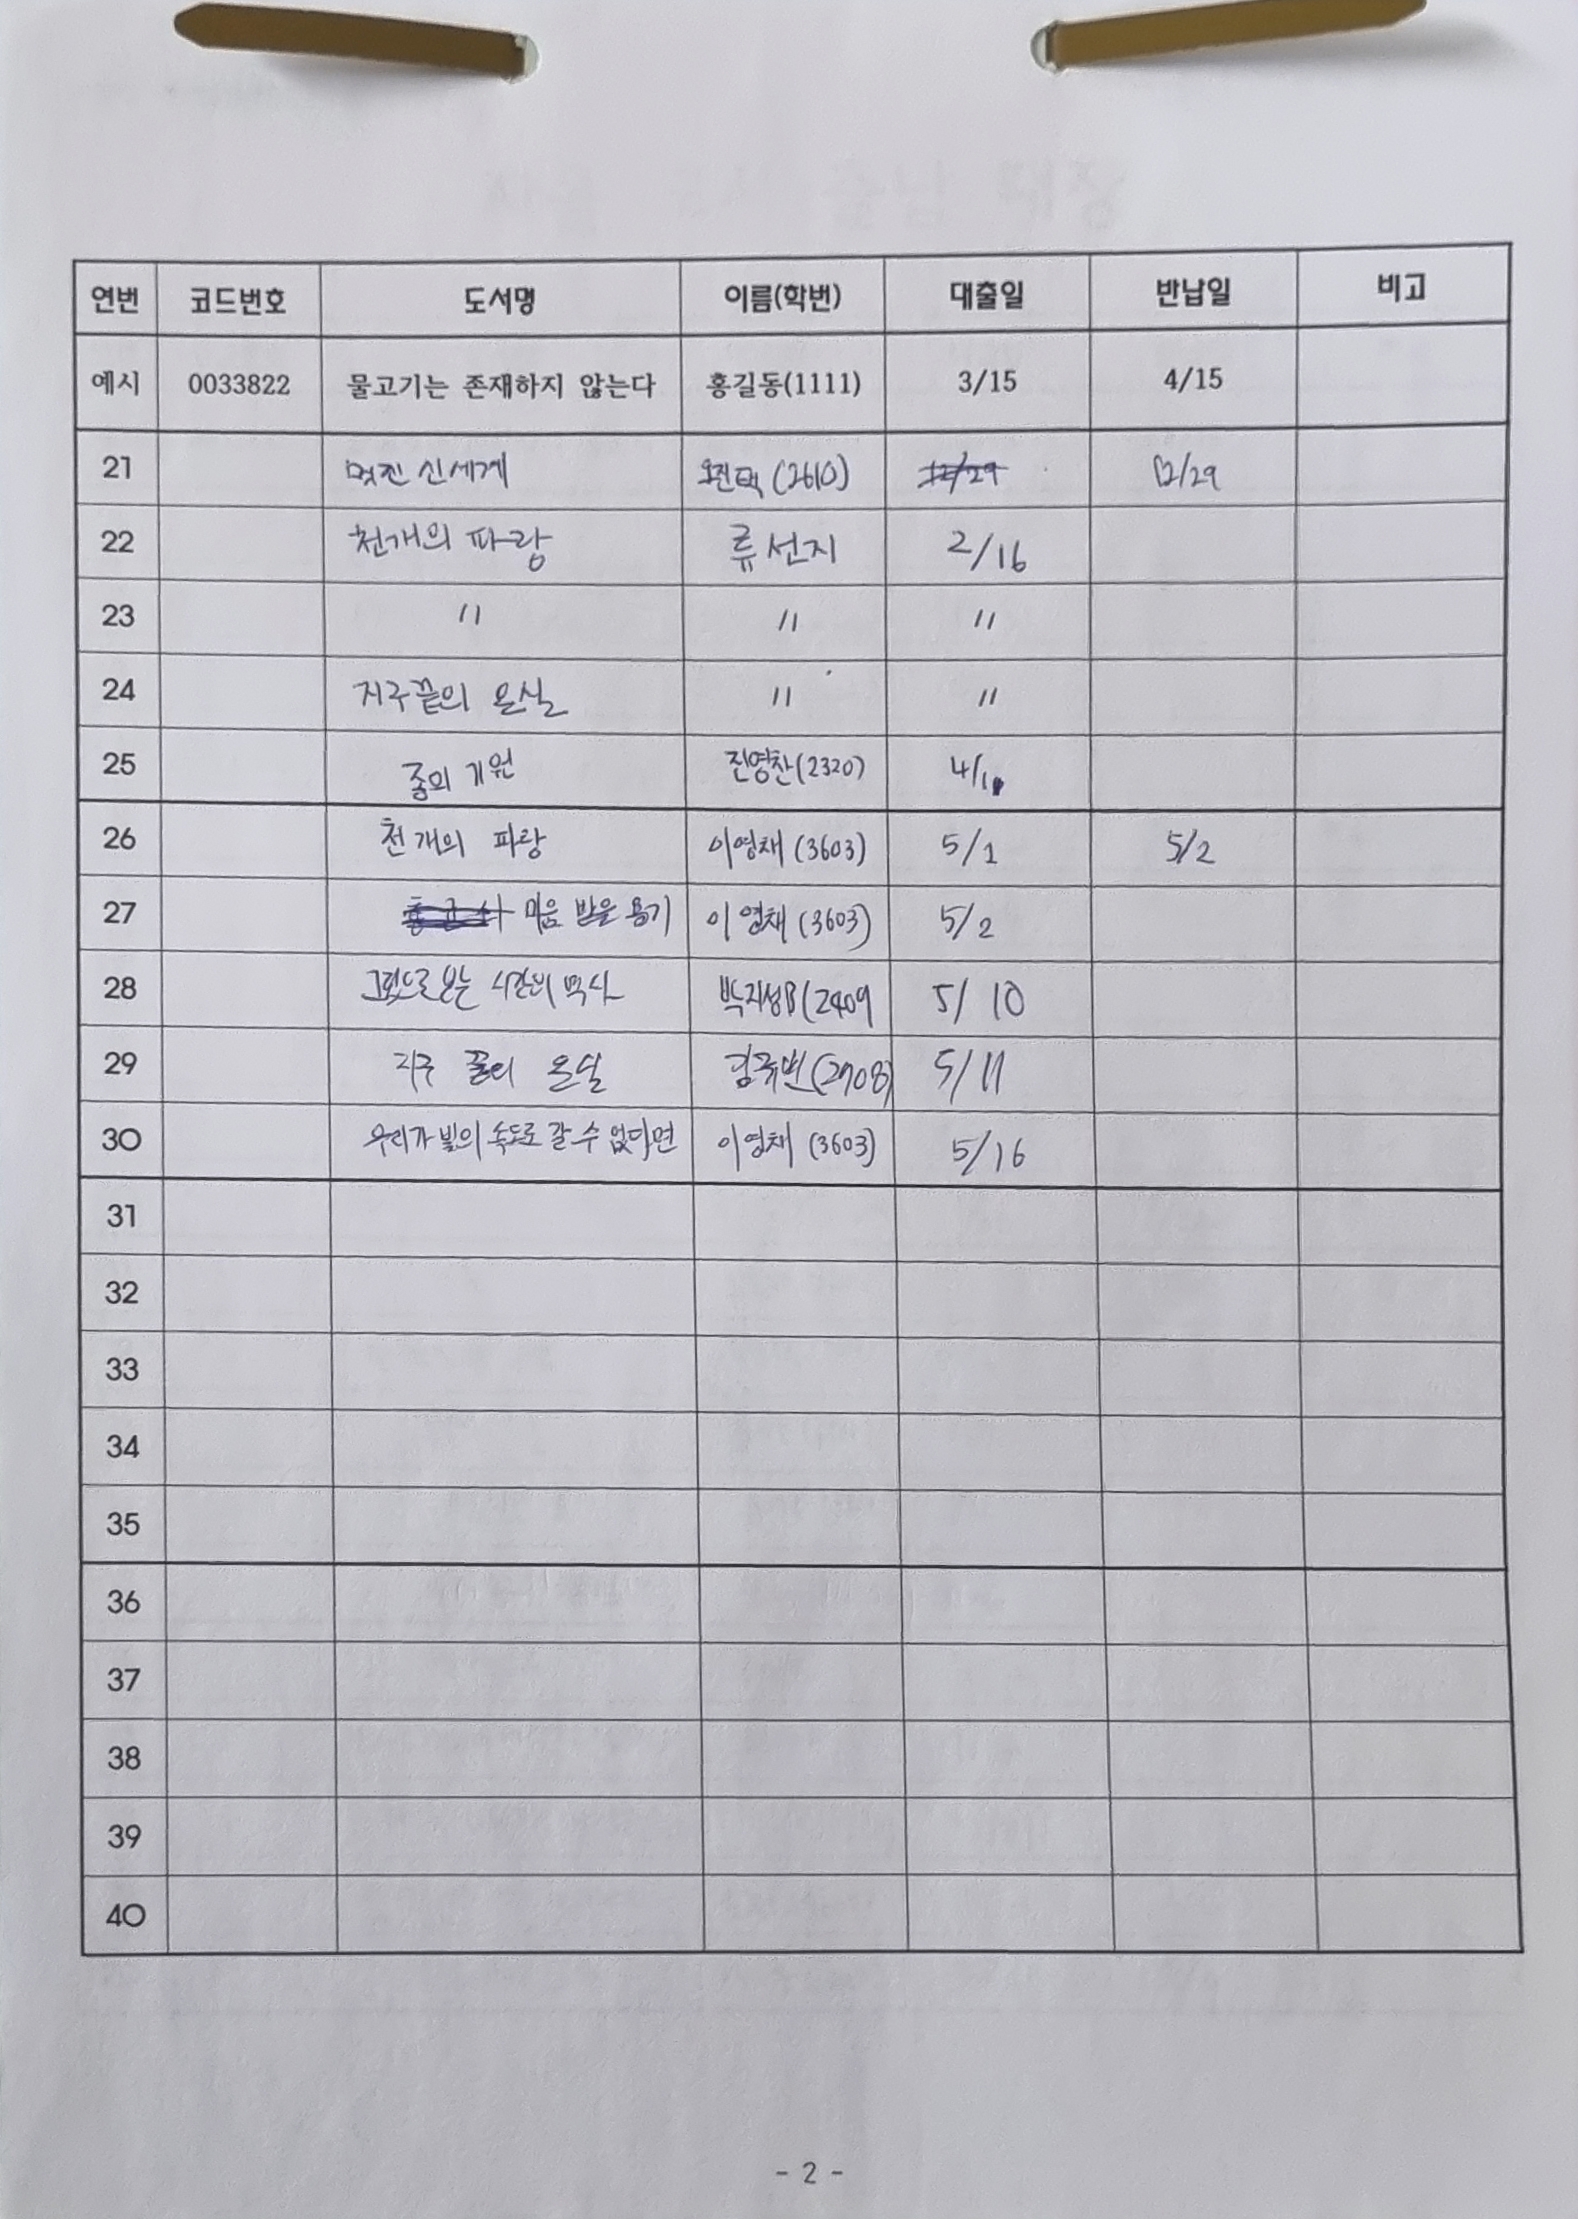 연번 코드번호 도서명 이름(학번) 대출일 반납일 비고
예시 0033822 물고기는 존재하지 않는다 홍길동(1111) 3/15 4/15
21 멋진 신세계 (2610) 12/29 12/29
22 천개의 파랑 류선지 2/16
23 〃 〃 〃
24 지구끝의 온실 〃 〃
25 종의 기원 진영찬(2320) 4/1
26 천개의 파랑 이영채(3603) 5/1 5/2
27 미움 받을 용기 이영채(3603) 5/2
28 그림으로 보는 시간의 역사 박지성B(2409 5/10
29 지구 끝의 온실 (2708) 5/11
30 우리가 빛의 속도로 갈 수 없다면 이영채(3603) 5/16
31
32
33
34
35
36
37
38
39
40
- 2 -